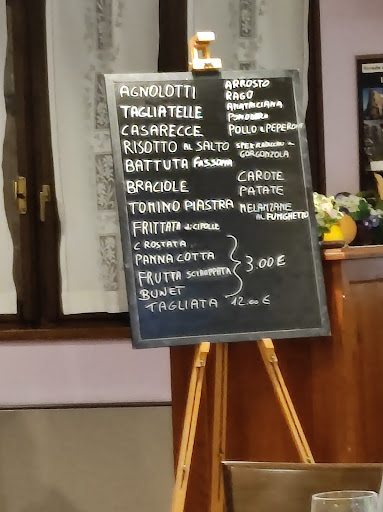 AGNOLOTTI
TAGLIATELLE
CASARECCE
RISOTTO AL SALTO
BATTUTA FASSONA
BRACIOLE
TOMINO PIASTRA
FRITTATA di CIPOLLE
CROSTATA
PANNA COTTA
FRUTTA SCIROPPATA
BUNET
3.00 €
TAGLIATA 12.00 €
ARROSTO
RAGÙ
AMATRICIANA
POMODORO
POLLO e PEPERONI
GORGONZOLA
CAROTE
PATATE
MELANZANE
AL FUNGHETTO